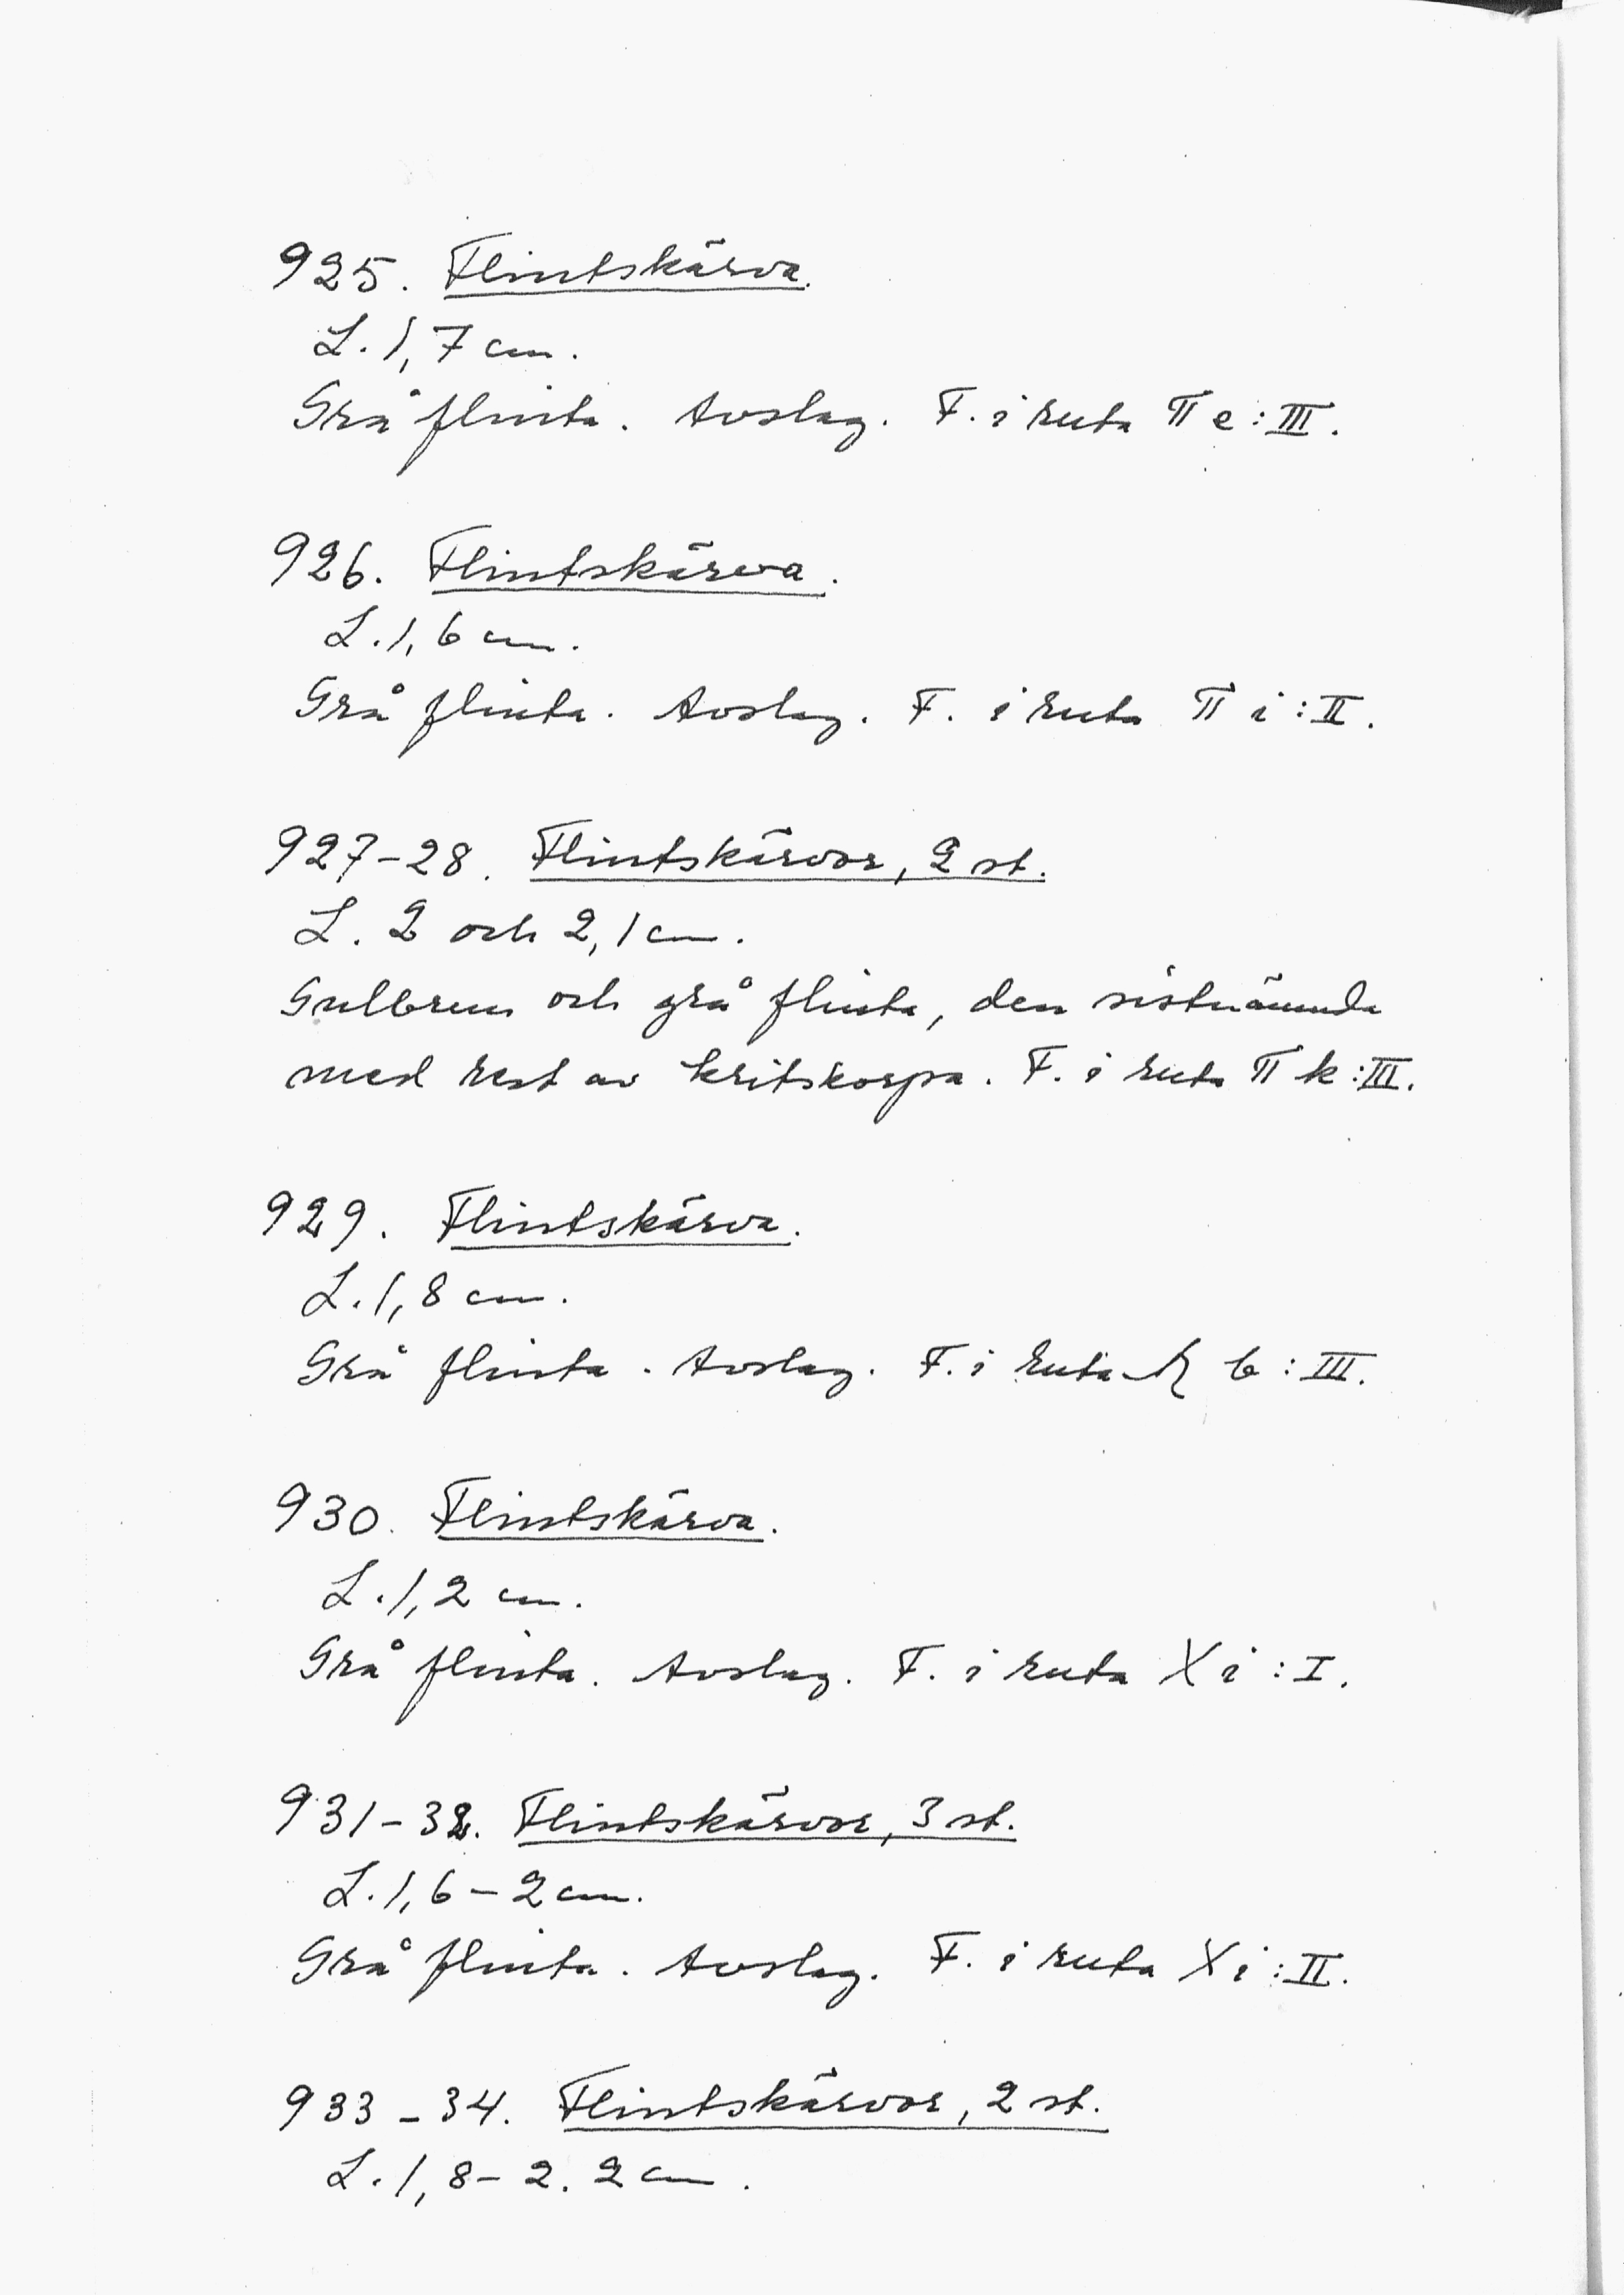 925. Flintskärva.
L. 1,7 cm.
Grå flinta. Avslag. F. i ruta π e : III.
926. Flintskärva.
L. 1,6 cm.
Grå flinta. Avslag. F. i ruta π i : II.
927-28. Flintskärvor, 2 st.
L. 2 och 2,1 cm.
Gulbrun och grå flinta, den sistnämnda
med rest av kritskorpa. F. i ruta π k : III.
929. Flintskärva.
L. 1,8 cm.
Grå flinta. Avslag. F. i ruta b : III.
930. Flintskärva.
L. 1,2 cm.
Grå flinta. Avslag. F. i ruta X i : I.
931-32. Flintskärvor, 3 st.
L. 1,6 - 2 cm.
Grå flinta. Avslag. F. i ruta X i : II.
933-34. Flintskärvor, 2 st.
L. 1,8 - 2.2 cm.